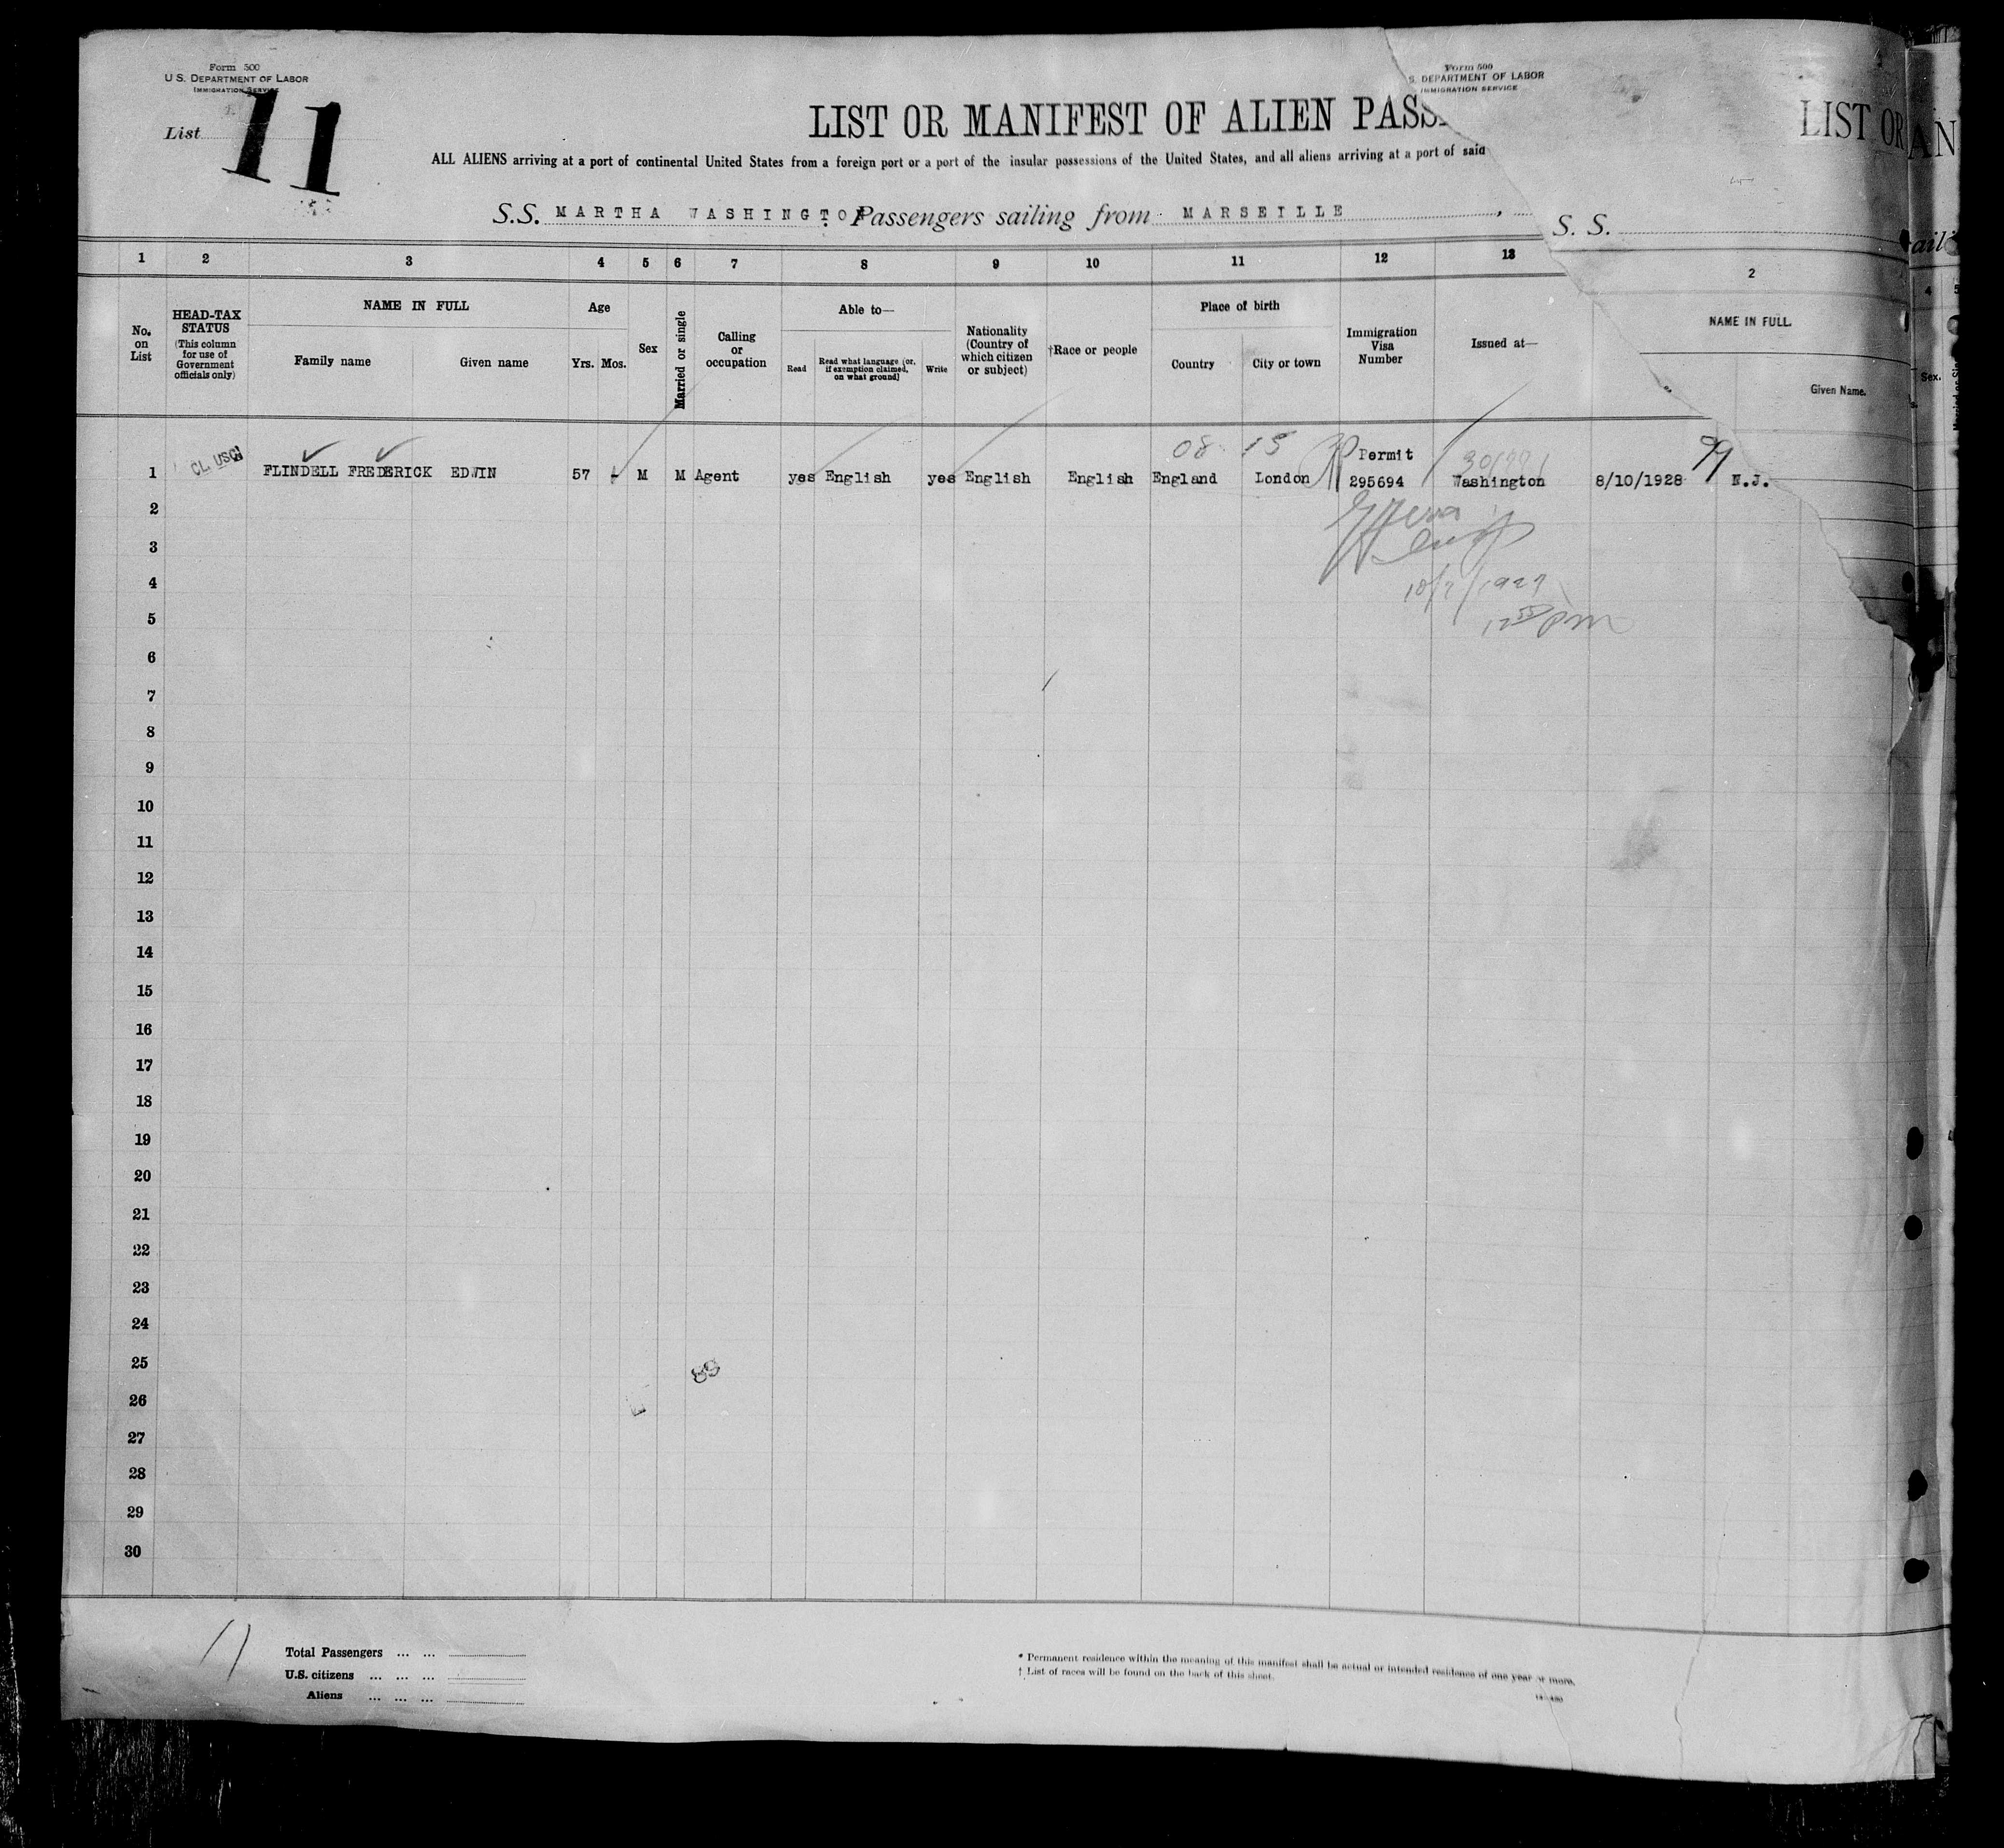 Form 500
U.S. DEPARTMENT OF LABOR
IMMIGRATION SERVICE
List 11
Form 500
S. DEPARTMENT OF LABOR
IMMIGRATION SERVICE
LIST OR MANIFEST OF ALIEN PASS
LIST OR
AN
ALL ALIENS arriving at a port of continental United States from a foreign port or a port of the insular possessions of the United States, and all aliens arriving at a port of said
S.S. MARTHA WASHINGTON Passengers sailing from MARSEILLE
S. S.
ail
1 2 3 4 5 6 7 8 9 10 11 12 13
2
4 5
No. on List
HEAD-TAX STATUS (This column for use of Government officials only)
NAME IN FULL
Family name Given name
Age
Yrs. Mos.
Sex
Married or single
Calling or occupation
Able to—
Read
Read what language (or, if exemption claimed, on what ground)
Write
Nationality (Country of which citizen or subject)
†Race or people
Place of birth
Country City or town
Immigration Visa Number
Issued at—
NAME IN FULL.
Given Name.
Sex.
CL. USC
08 15
Permit
99
1 FLINDELL FREDERICK EDWIN 57 - M M Agent yes English yes English English England London 295694 Washington 8/10/1928 N.J.
2
3
4
5
pm
6
7
8
9
10
11
12
13
14
15
16
17
18
19
20
21
22
23
24
25
26
27
28
29
30
11
Total Passengers ... ...
U.S. citizens ... ... ...
Aliens ... ... ...
* Permanent residence within the meaning of this manifest shall be actual or intended residence of one year or more.
† List of races will be found on the back of this sheet.